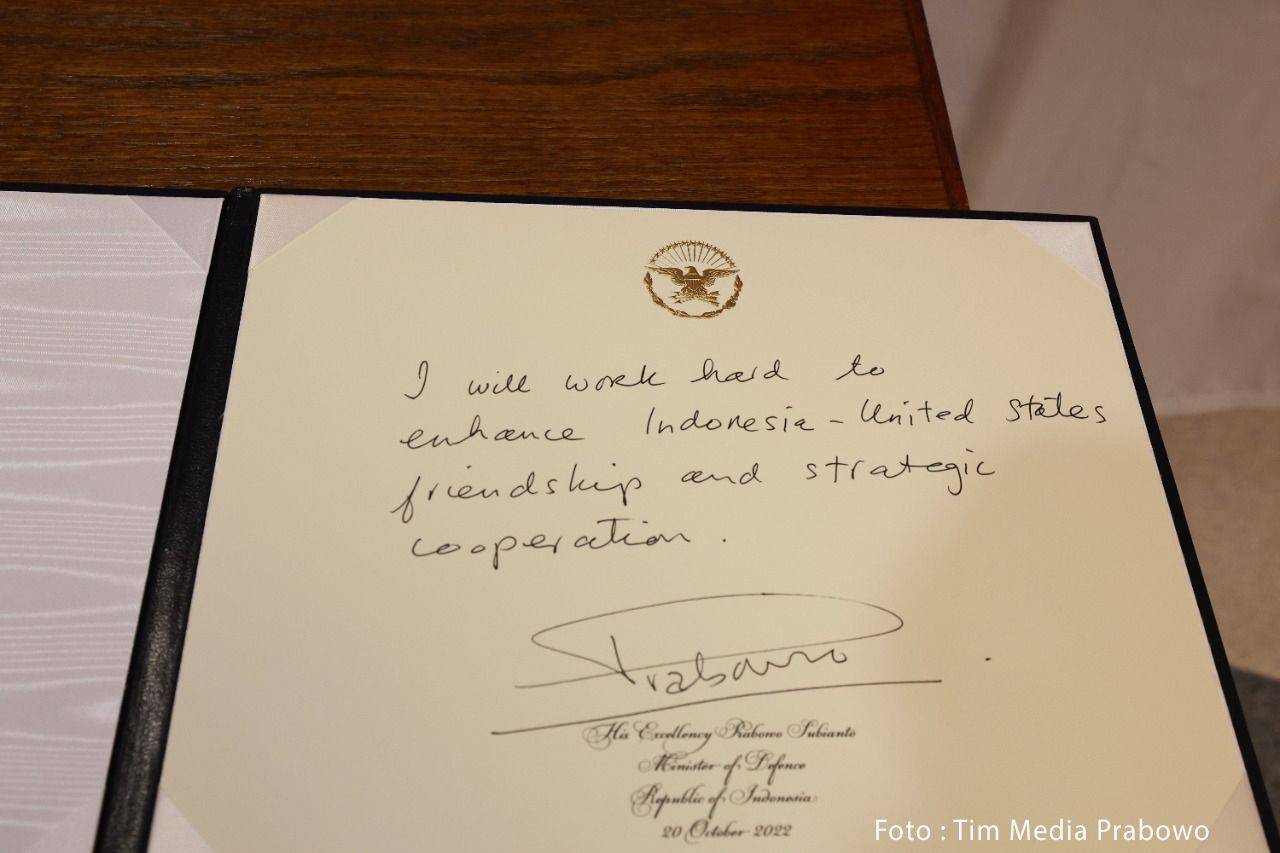 I will work hard to
enhance Indonesia - United States
friendship and strategic
cooperation.
Prabowo
His Excellency Prabowo Subianto
Minister of Defence
Republic of Indonesia
20 October 2022
Foto : Tim Media Prabowo